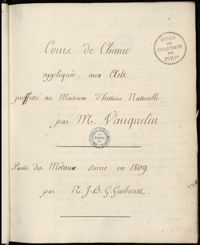 Cours de Chimie
appliquée aux Arts
professé au Museum d'histoire Naturelle
par M. Vauquelin.
Partie des Métaux Suivie en 1809.
par N. J-B. G. Guibourt
ECOLE
DE
PHARMACIE
DE
PARIS